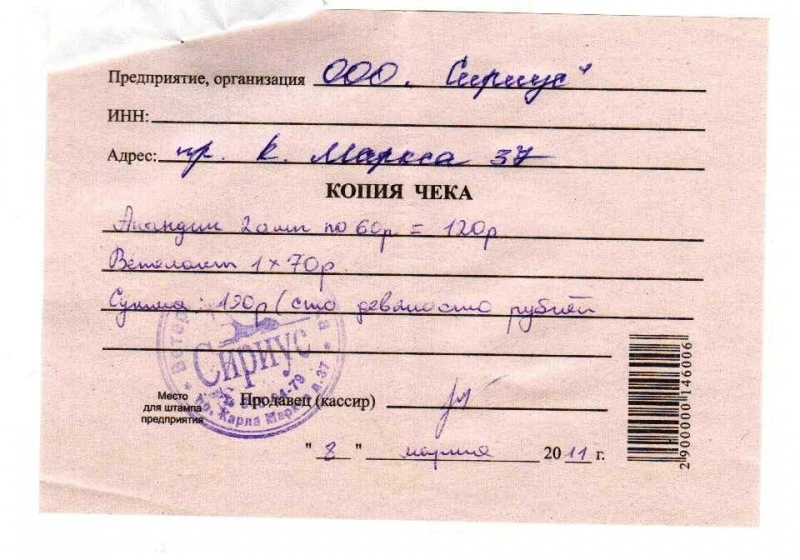 Предприятие, организация ООО "Сириус"
ИНН:
Адрес: пр. К. Маркса 37
КОПИЯ ЧЕКА
Анандин 2амп по 60р = 120р
Ветолакт 1 х 70р
Сумма: 190р (сто девяносто рублей
Ветер
Сириус
пр. Карла Маркса, д. 37
Место
для штампа
предприятия
Продавец (кассир)
" 8 " марта 2011 г.
2 900000 146006